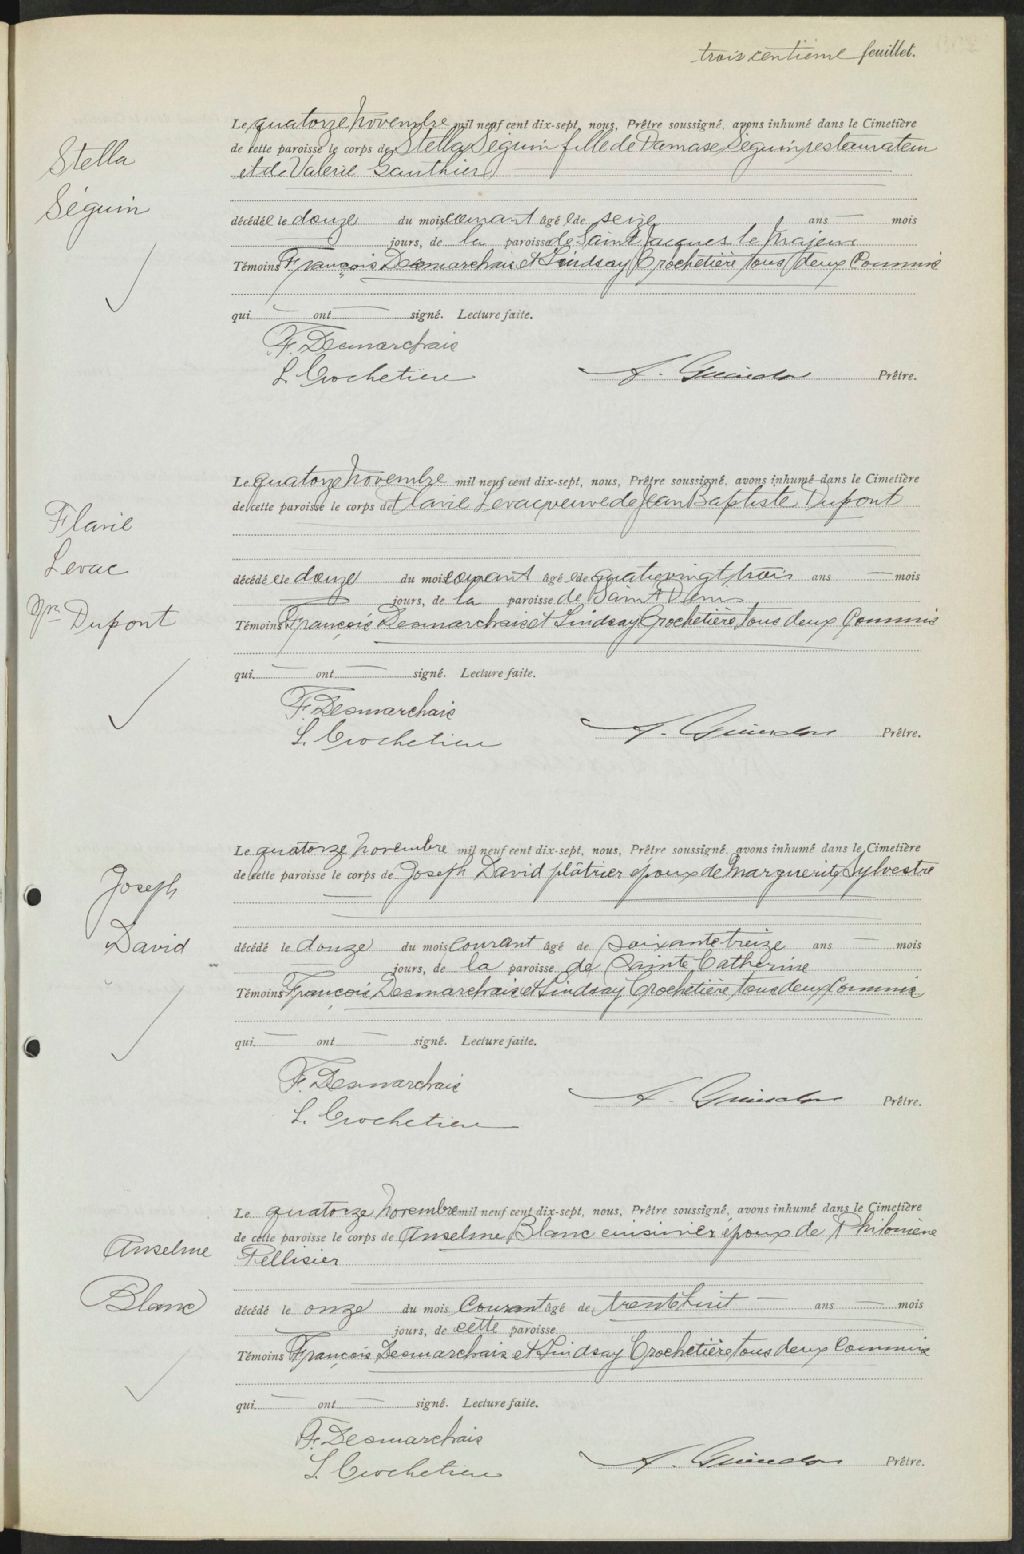 trois centième feuillet.
Stella
Séguin
Le quatorze novembre mil neuf cent dix-sept, nous, Prêtre soussigné, avons inhumé dans le Cimetière
de cette paroisse le corps de Stella Séguin fille de Damase Séguin restaurateur
et de Valérie Gauthier
décédée le douze du mois courant âgée de seize ans — mois
jours, de la paroisse de Saint Jacques le Majeur
Témoins François Desmarchais et Lindsay Crochetière tous deux Commis
qui — ont — signé. Lecture faite.
F. Desmarchais
L. Crochetiere
A. Guindon Prêtre.
Flavie
Levac
Vve Dupont
Le quatorze novembre mil neuf cent dix-sept, nous, Prêtre soussigné, avons inhumé dans le Cimetière
de cette paroisse le corps de Flavie Levac veuve de Jean Baptiste Dupont
décédée le douze du mois courant âgée de quatrevingt trois ans — mois
jours, de la paroisse de Saint Denis
Témoins François Desmarchais et Lindsay Crochetière tous deux Commis
qui — ont — signé. Lecture faite.
F. Desmarchais
L. Crochetiere
A. Guindon Prêtre.
Joseph
David
Le quatorze novembre mil neuf cent dix-sept, nous, Prêtre soussigné, avons inhumé dans le Cimetière
de cette paroisse le corps de Joseph David plâtrier époux de Marguerite Sylvestre
décédé le douze du mois courant âgé de soixante treize ans — mois
jours, de la paroisse de Sainte Catherine
Témoins François Desmarchais et Lindsay Crochetière tous deux Commis
qui — ont — signé. Lecture faite.
F. Desmarchais
L. Crochetiere
A. Guindon Prêtre.
Anselme
Blanc
Le quatorze novembre mil neuf cent dix-sept, nous, Prêtre soussigné, avons inhumé dans le Cimetière
de cette paroisse le corps de Anselme Blanc cuisinier époux de Philomène
Pellisier
décédé le onze du mois courant âgé de trente huit — ans — mois
jours, de cette paroisse
Témoins François Desmarchais et Lindsay Crochetière tous deux Commis
qui — ont — signé. Lecture faite.
F. Desmarchais
L. Crochetiere
A. Guindon Prêtre.